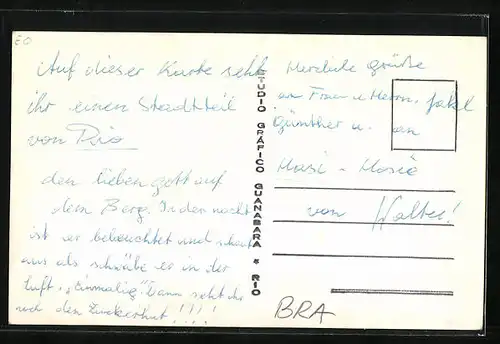 EO
Auf dieser Karte seht
ihr einen Stadtteil
von Rio
den lieben gott auf
dem Berg. In der nacht
ist er beleuchtet und schaut
aus als schwäbe er in der
luft, "Einmalig" Dann seht ihr
noch den Zuckerhut!!!!
STUDIO GRÁFICO GUANABARA * RIO
Herzliche grüße
an Frau u Herrn,
Günther u. an
Hasi - Hosie
von Walter!
BRA